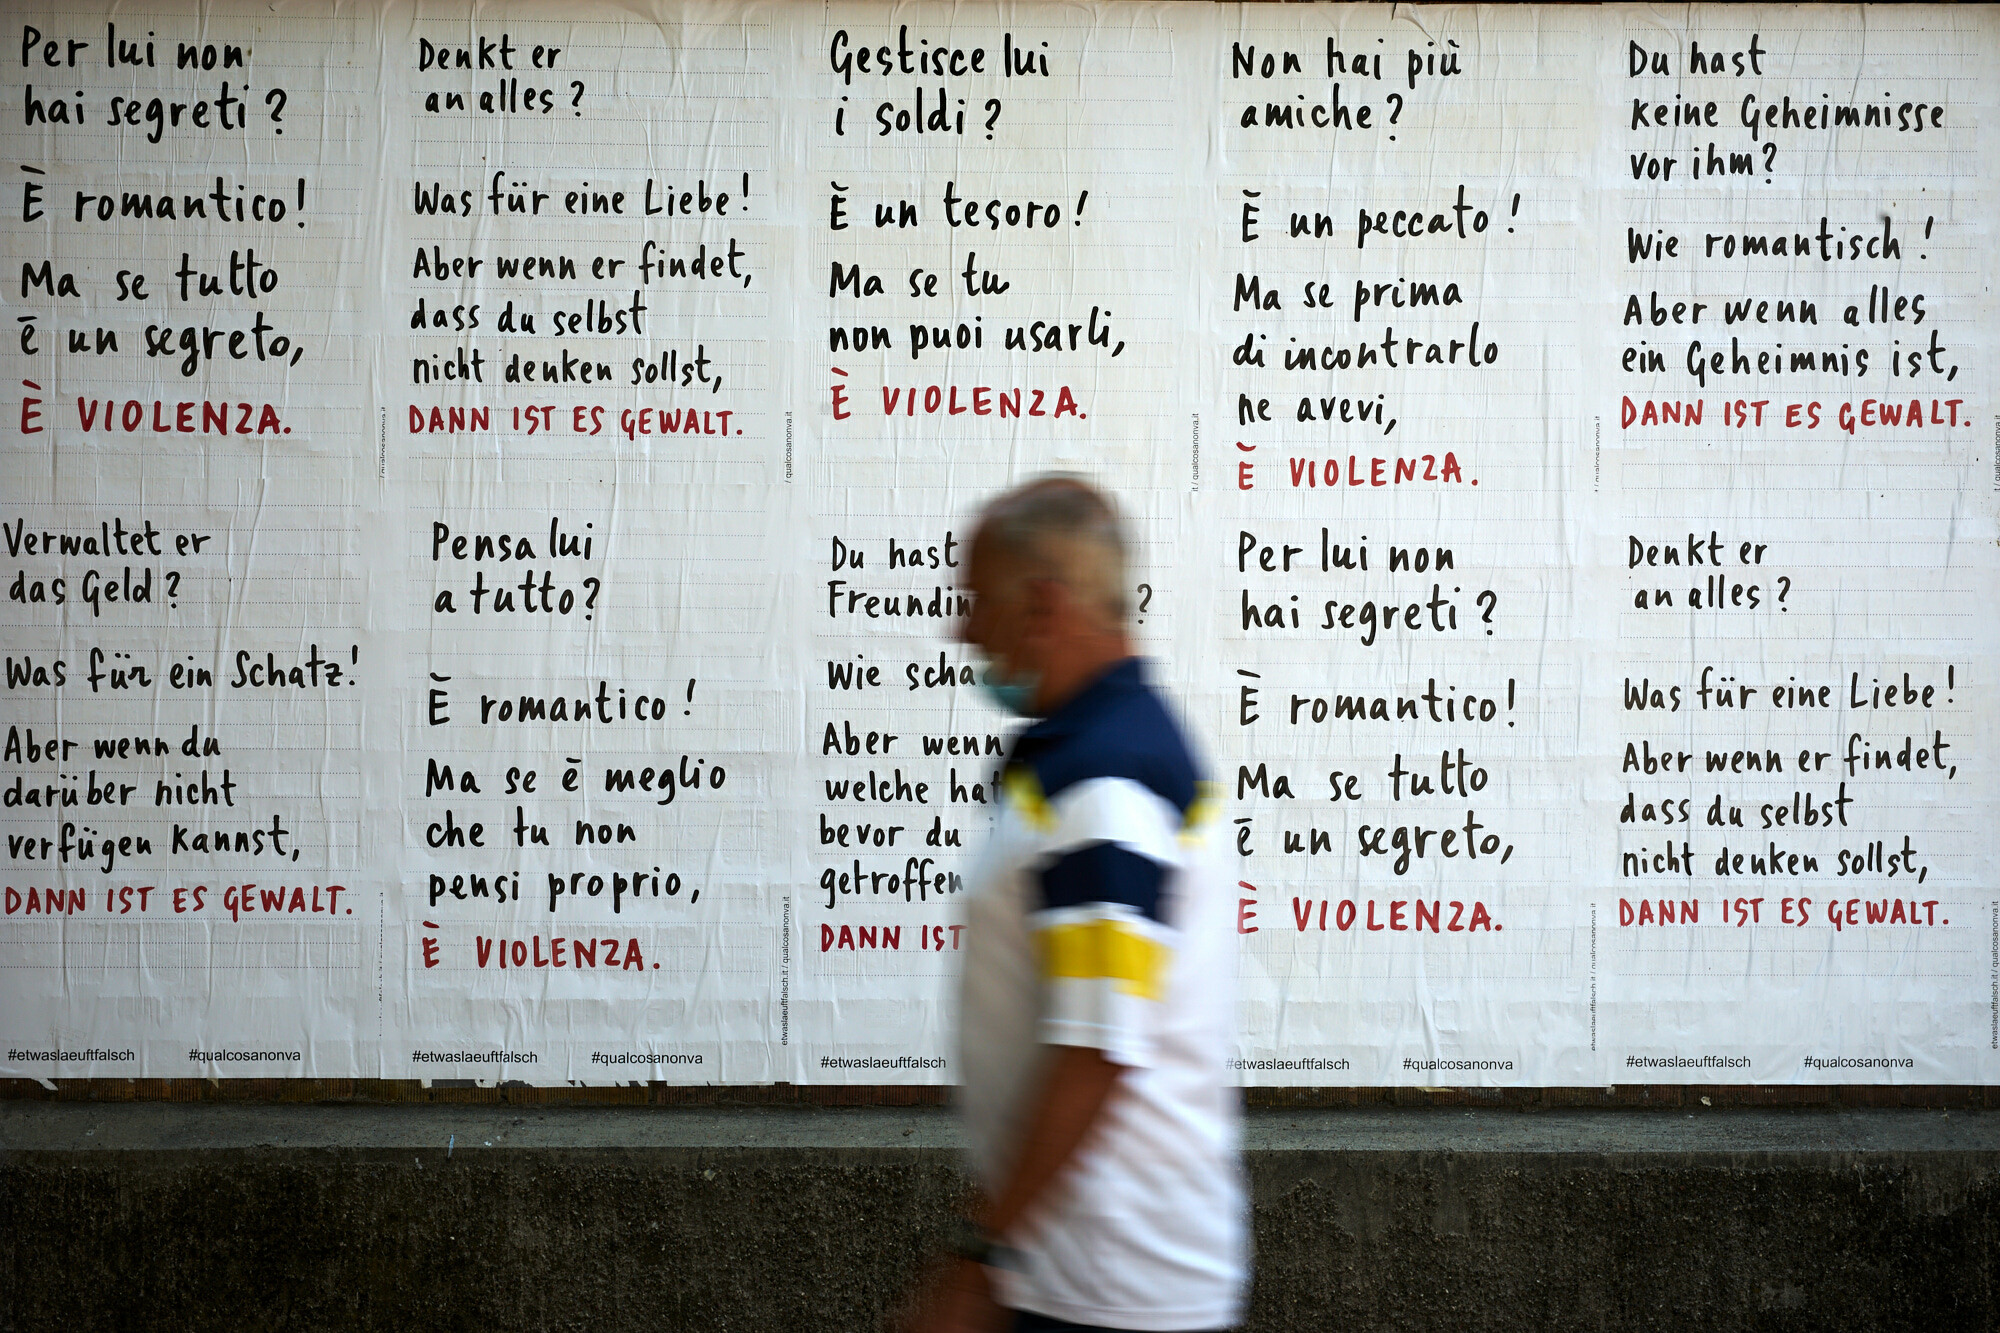 Per lui non
hai segreti?
È romantico!
Ma se tutto
è un segreto,
È VIOLENZA.
Denkt er
an alles?
Was für eine Liebe!
Aber wenn er findet,
dass du selbst
nicht denken sollst,
DANN IST ES GEWALT.
Gestisce lui
i soldi?
È un tesoro!
Ma se tu
non puoi usarli,
È VIOLENZA.
Non hai più
amiche?
È un peccato!
Ma se prima
di incontrarlo
ne avevi,
È VIOLENZA.
Du hast
keine Geheimnisse
vor ihm?
Wie romantisch!
Aber wenn alles
ein Geheimnis ist,
DANN IST ES GEWALT.
/ qualcosanonva.it
/ qualcosanonva.it
it / qualcosanonva.it
/ qualcosanonva.it
/ qualcosanonva.it
Verwaltet er
das Geld?
Was für ein Schatz!
Aber wenn du
darüber nicht
verfügen kannst,
DANN IST ES GEWALT.
Pensa lui
a tutto?
È romantico!
Ma se è meglio
che tu non
pensi proprio,
È VIOLENZA.
Du hast
?
Wie
Aber wenn
welche
bevor du
getroffen
DANN IST
Per lui non
hai segreti?
È romantico!
Ma se tutto
è un segreto,
È VIOLENZA.
Denkt er
an alles?
Was für eine Liebe!
Aber wenn er findet,
dass du selbst
nicht denken sollst,
DANN IST ES GEWALT.
etwaslaeuftfalsch.it / qualcosanonva.it
etwaslaeuftfalsch.it / qualcosanonva.it
etwaslaeuftfalsch.it / qualcosanonva.it
#etwaslaeuftfalsch #qualcosanonva
#etwaslaeuftfalsch #qualcosanonva
#etwaslaeuftfalsch
#etwaslaeuftfalsch #qualcosanonva
#etwaslaeuftfalsch #qualcosanonva